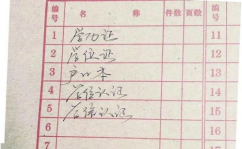 编号 名称 件数 页数 编号
1 学历证 11
2 学位证 12
3 户口本 13
4 学位认证 14
5 学籍认证 15
6 16